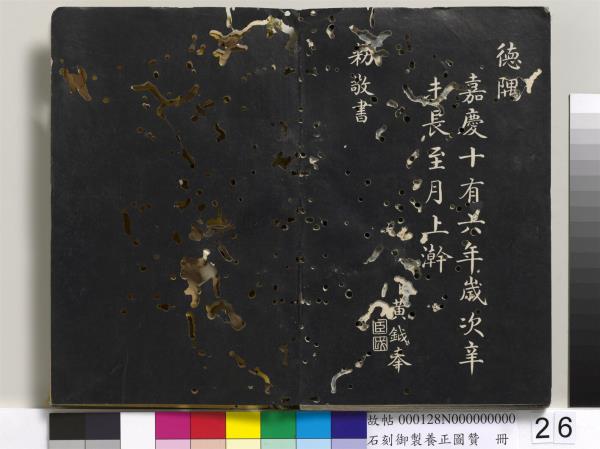 德隅
嘉慶十有六年歲次辛
長至月上澣
黃鉞奉
勅敬書
故帖 000128N000000000
石刻御製養正圖贊 冊
26